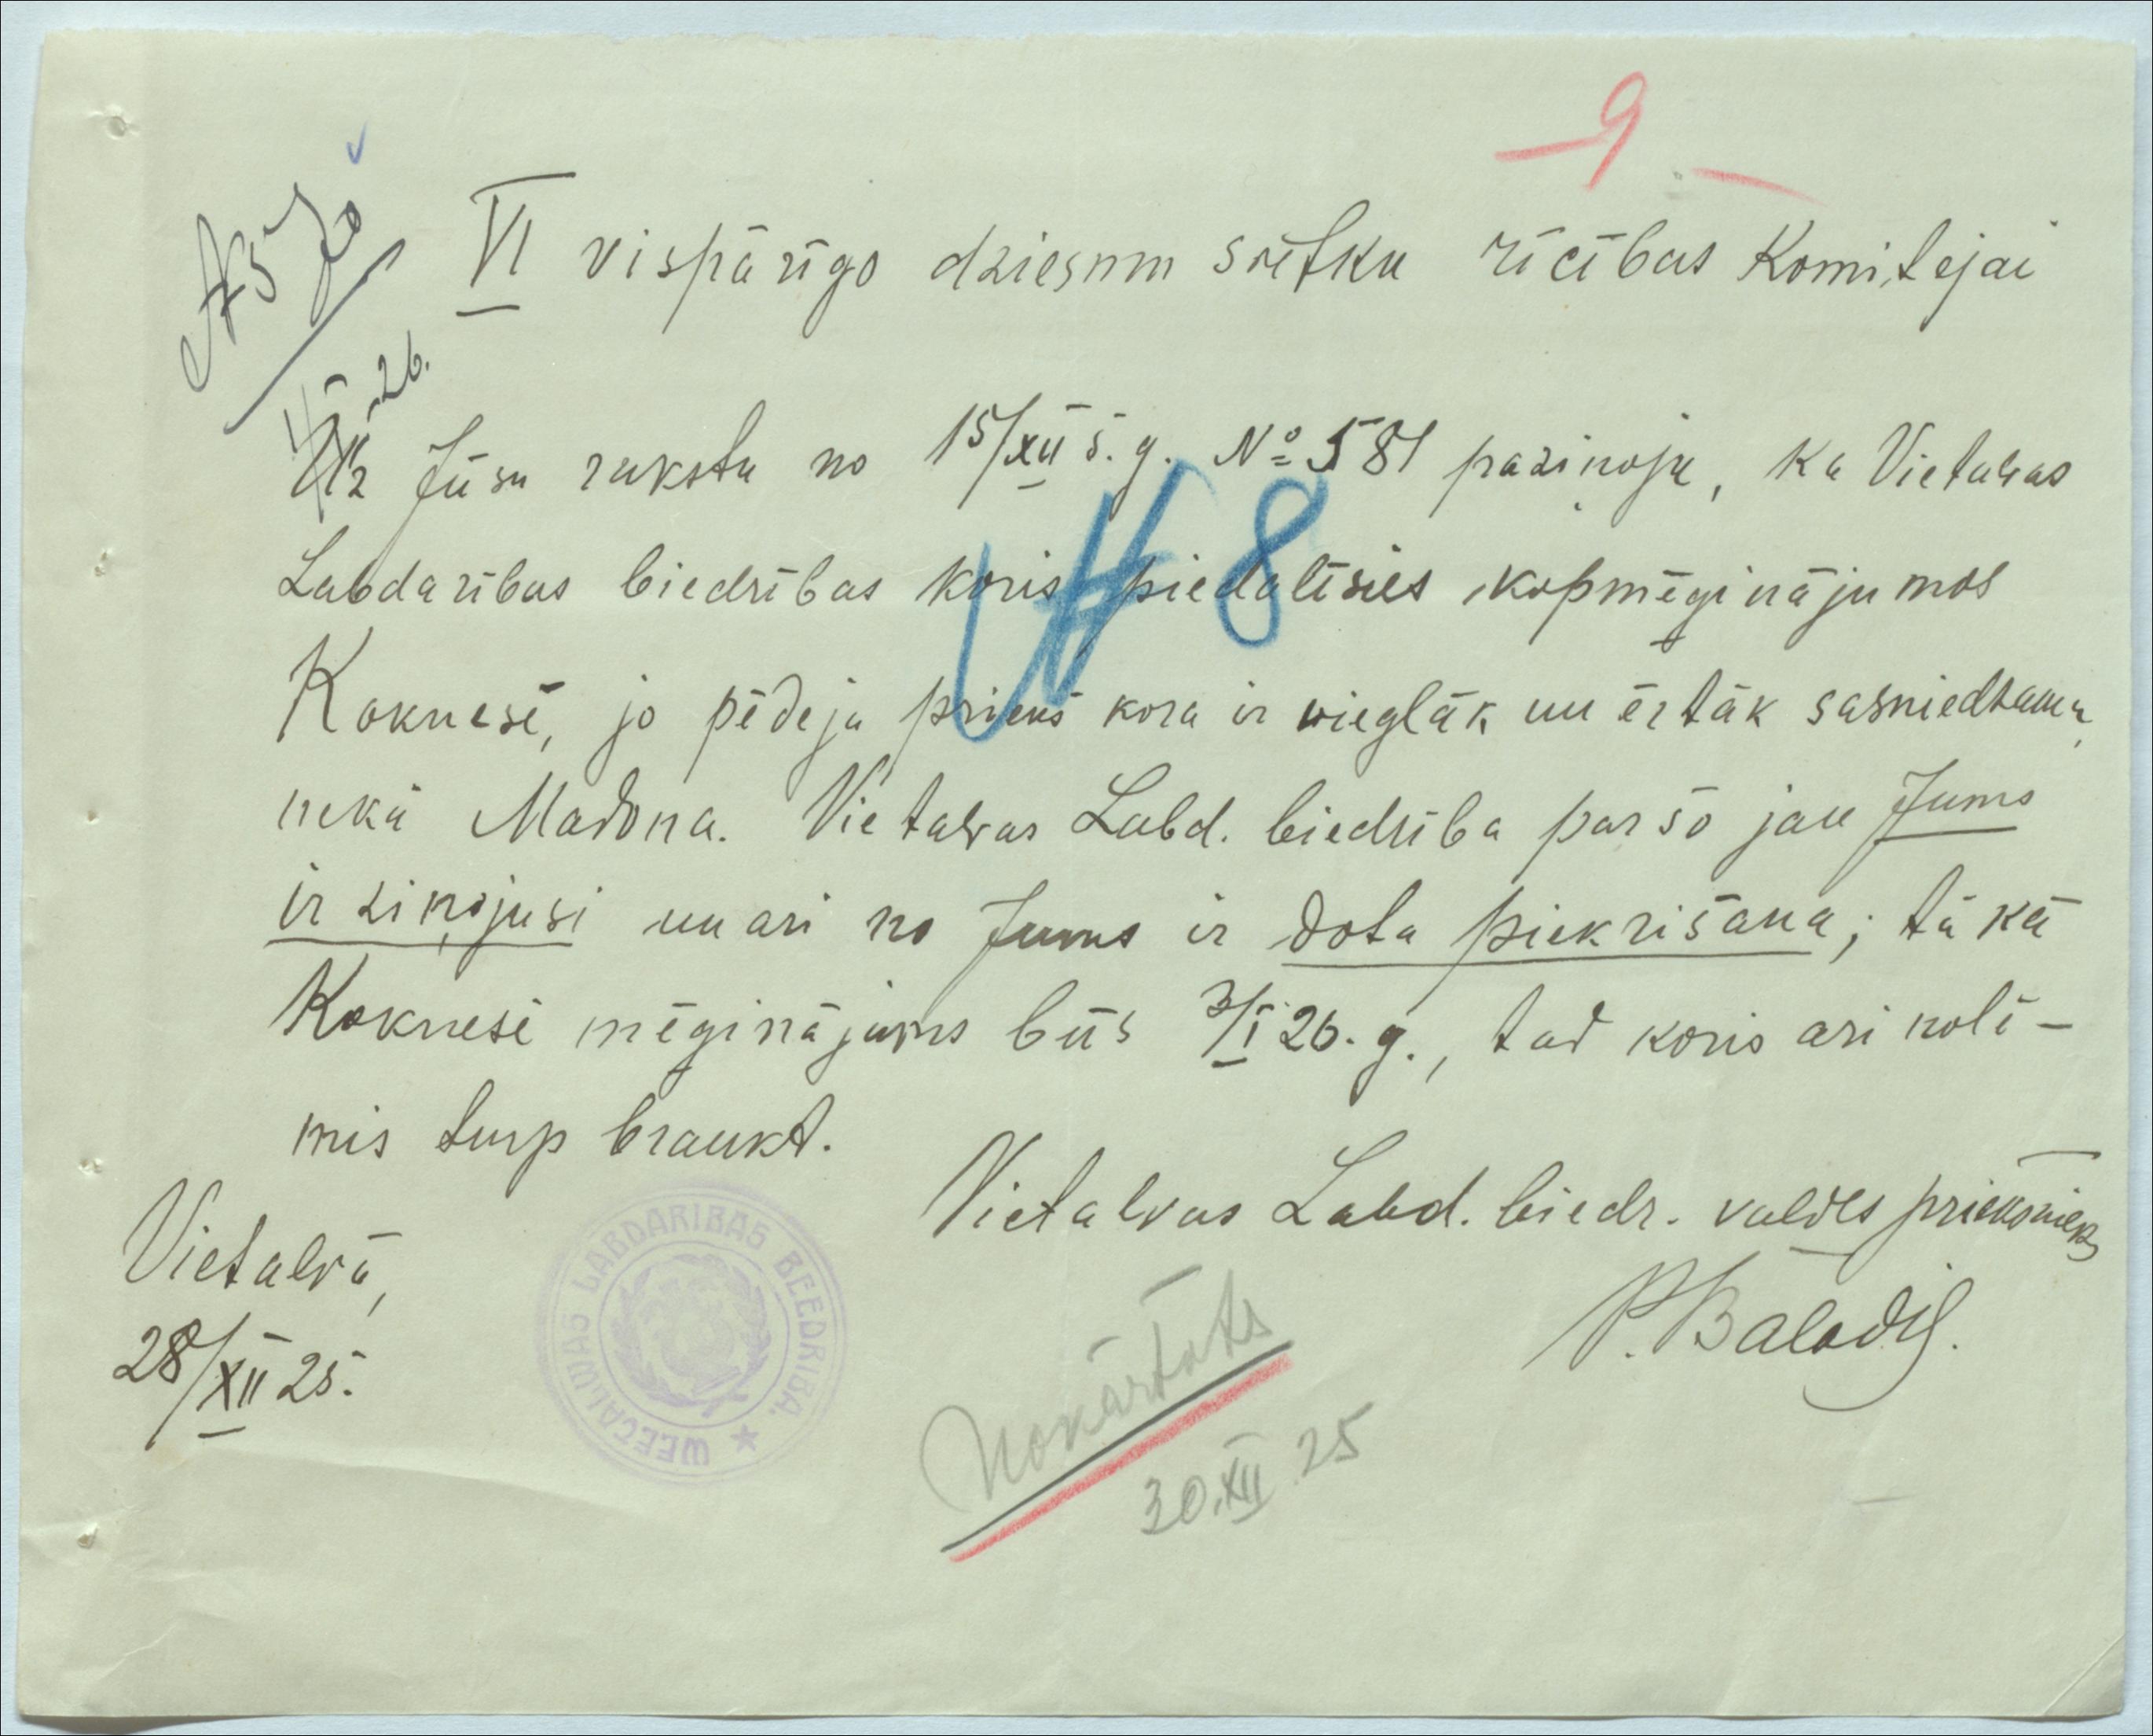 – 9 –
№ 70
VI vispārīgo dziesmu svētku rīcības Komitejai
4/I 26.
Uz Jūsu rakstu no 15/XII š. g. № 581 paziņoju, ka Vietalvas
№ 8
Labdarības biedrības koris piedalīsies kopmēģinājumos
Koknesē, jo pēdeja priekš kora ir vieglāk un ērtāk sasniedzama,
nekā Madona. Vietalvas Labd. biedrība par šo jau Jums
ir ziņojusi un ari no Jums ir dota piekrišana; tā kā
Koknesē mēģinājums būs 3/I 26. g., tad koris ari nolē-
mis turp braukt.
Vietalvas Labd. biedr. valdes priekšnieks
P. Balodis.
Vietalvā,
28/XII 25.
WEETALWAS LABDARIBAS BEEDRIBA.
Nokārtots
30.XII 25